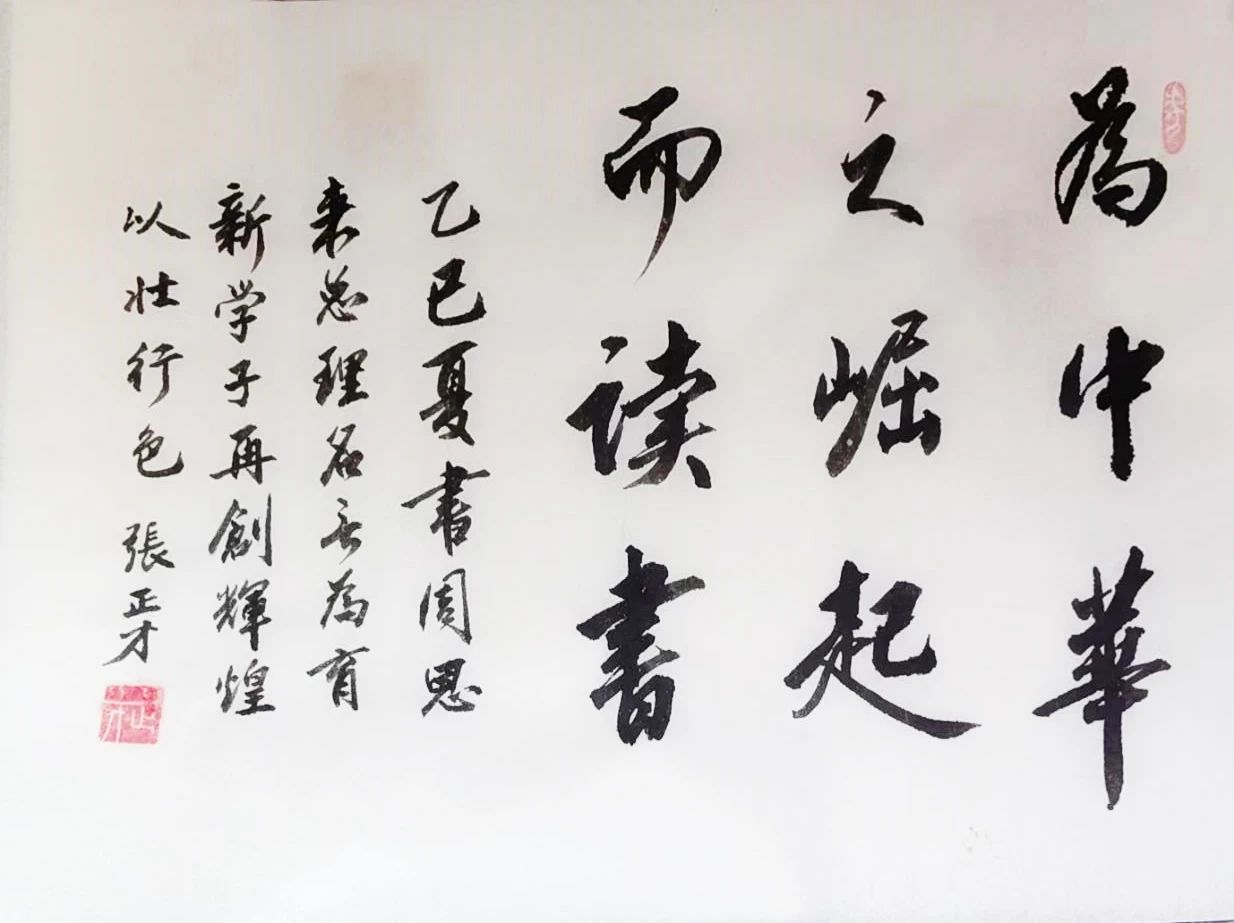 為中華
之崛起
而读書
乙巳夏書周恩
来总理名言為育
新学子再創輝煌
以壮行色 張正才